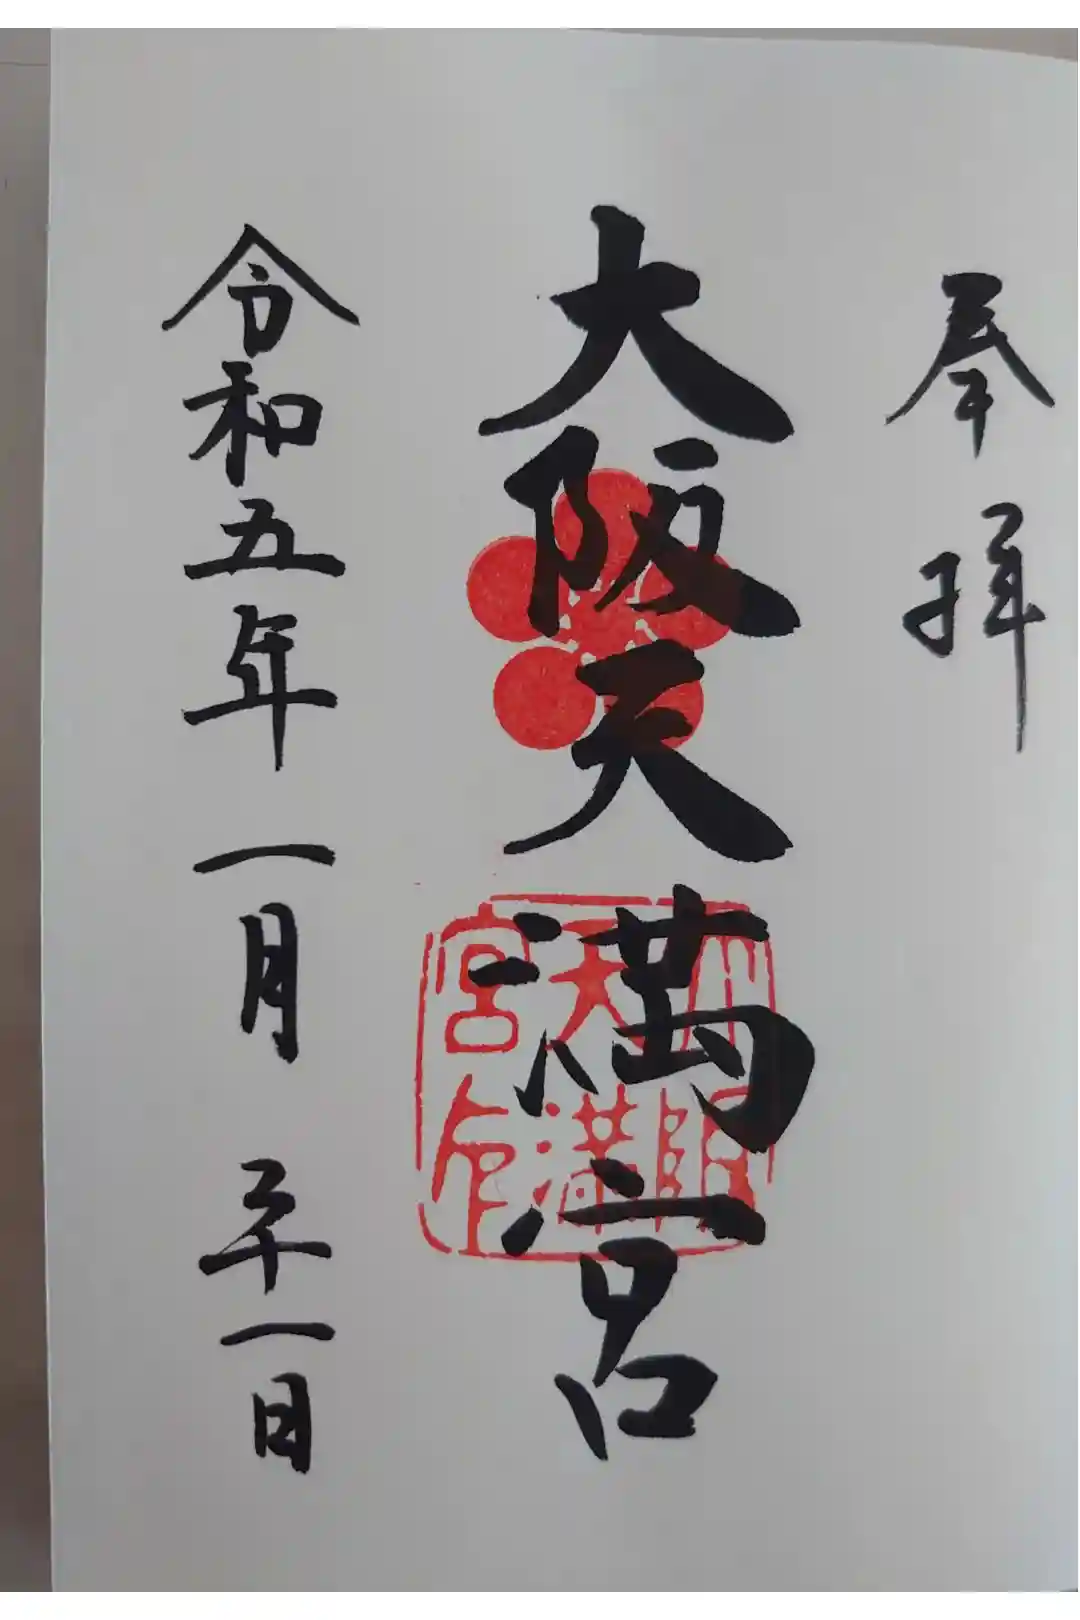 奉拝
大阪天満宮
大阪
天満
宮印
令和五年一月二十一日